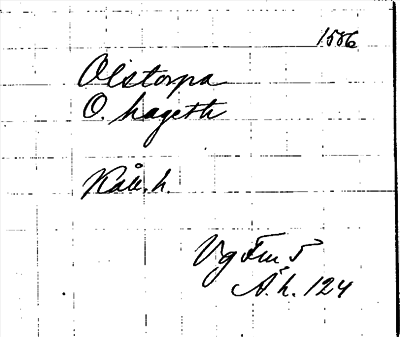 1586
Olstorpa
O. hageth
Kåll. h.
Vg Fm 5
Å. h. 124